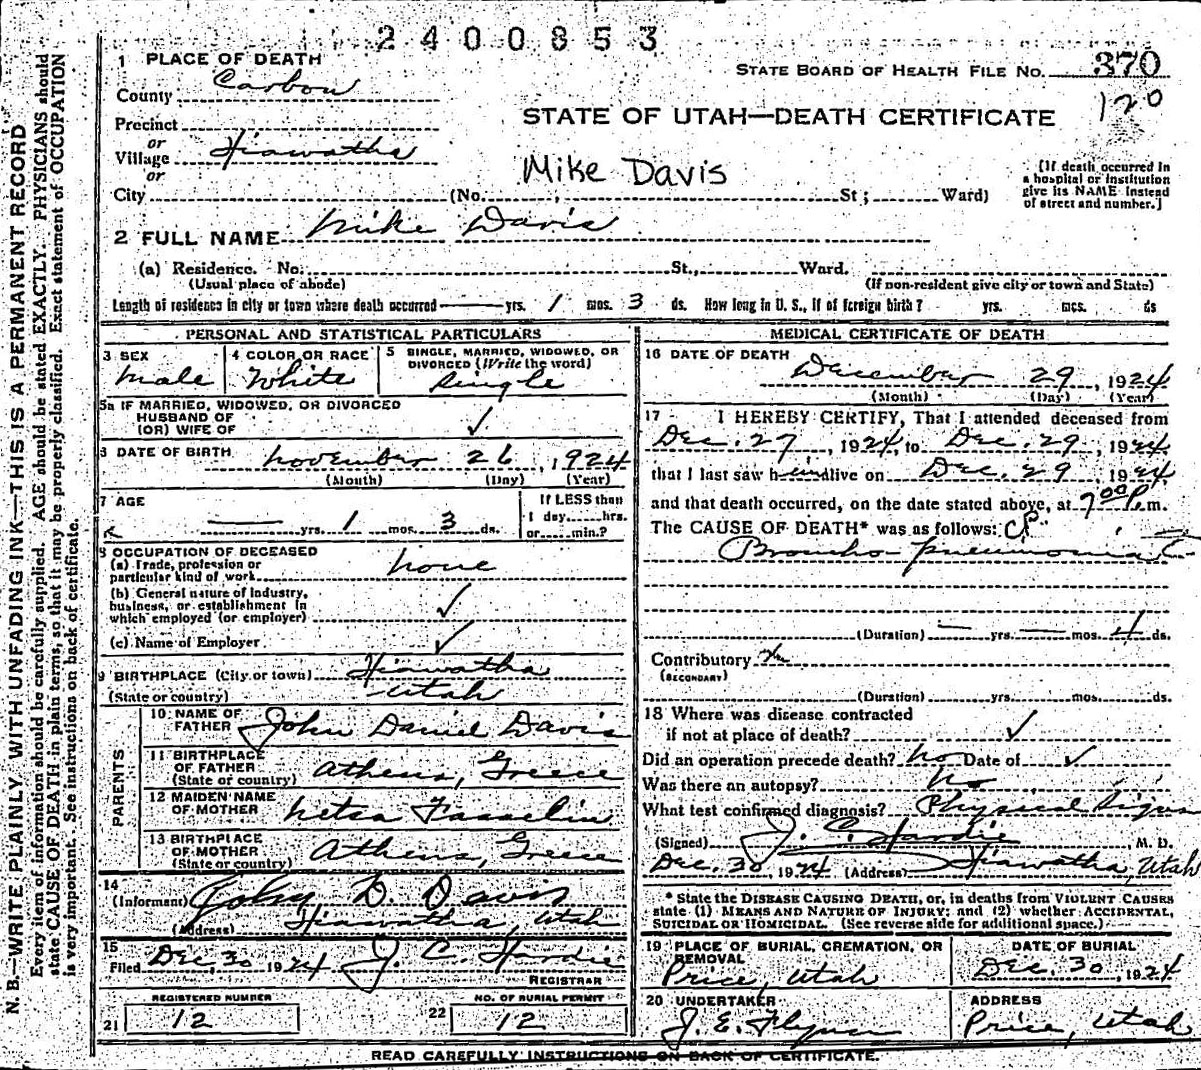 2400853
1 PLACE OF DEATH
STATE BOARD OF HEALTH FILE No. 370
County Carbon
120
STATE OF UTAH—DEATH CERTIFICATE
Precinct
or
Village Hiawatha
or
Mike Davis
City (No. St; Ward)
(If death occurred in
a hospital or institution
give its NAME instead
of street and number.]
2 FULL NAME Mike Davis
(a) Residence. No. St., Ward.
(Usual place of abode) (If non-resident give city or town and State)
Length of residence in city or town where death occurred — yrs. 1 mos. 3 ds. How long in U. S., if of foreign birth? yrs. mos. ds
PERSONAL AND STATISTICAL PARTICULARS
3 SEX
Male
4 COLOR OR RACE
White
5 SINGLE, MARRIED, WIDOWED, OR
DIVORCED (Write the word)
Single
5a IF MARRIED, WIDOWED, OR DIVORCED
HUSBAND OF
(OR) WIFE OF ✓
6 DATE OF BIRTH November 26, 1924
(Month) (Day) (Year)
7 AGE
— yrs. 1 mos. 3 ds.
If LESS than
1 day......hrs.
or......min.?
8 OCCUPATION OF DECEASED
(a) Trade, profession or
particular kind of work none
(b) General nature of Industry,
business, or establishment in
which employed (or employer) ✓
(c) Name of Employer ✓
9 BIRTHPLACE (City or town) Hiawatha
(State or country) Utah
PARENTS
10 NAME OF
FATHER John Daniel Davis
11 BIRTHPLACE
OF FATHER
(State or country) Athens, Greece
12 MAIDEN NAME
OF MOTHER
13 BIRTHPLACE
OF MOTHER
(State or country) Athens, Greece
14
(Informant) John D. Davis
(Address) Hiawatha, Utah
15
Filed Dec, 30 1924 J. C. Hardie
REGISTRAR
REGISTERED NUMBER
21 12
NO. OF BURIAL PERMIT
22 12
MEDICAL CERTIFICATE OF DEATH
16 DATE OF DEATH
December 29, 1924
(Month) (Day) (Year)
17 I HEREBY CERTIFY, That I attended deceased from
Dec. 27, 1924, to Dec. 29, 1924
that I last saw him alive on Dec. 29 1924
and that death occurred, on the date stated above, at 7 00 P. m.
The CAUSE OF DEATH* was as follows:
Broncho-pneumonia
(Duration) — yrs. — mos. 4 ds.
Contributory
(SECONDARY)
(Duration) yrs. mos. ds.
18 Where was disease contracted
if not at place of death? ✓
Did an operation precede death? No Date of ✓
Was there an autopsy? No
What test confirmed diagnosis? Physical Signs
(Signed) J. C. Hardie, M. D.
Dec. 30, 1924 (Address) Hiawatha, Utah
* State the DISEASE CAUSING DEATH, or, in deaths from VIOLENT CAUSES
state (1) MEANS AND NATURE OF INJURY; and (2) whether ACCIDENTAL,
SUICIDAL OR HOMICIDAL. (See reverse side for additional space.)
19 PLACE OF BURIAL, CREMATION, OR
REMOVAL
Price, Utah
DATE OF BURIAL
Dec. 30, 1924
20 UNDERTAKER
J. E. Flynn
ADDRESS
Price, Utah
READ CAREFULLY INSTRUCTIONS ON BACK OF CERTIFICATE.
N. B.—WRITE PLAINLY WITH UNFADING INK—THIS IS A PERMANENT RECORD
Every item of information should be carefully supplied. AGE should be stated EXACTLY. PHYSICIANS should
state CAUSE OF DEATH in plain terms, so that it may be properly classified. Exact statement of OCCUPATION
is very important. See instructions on back of certificate.